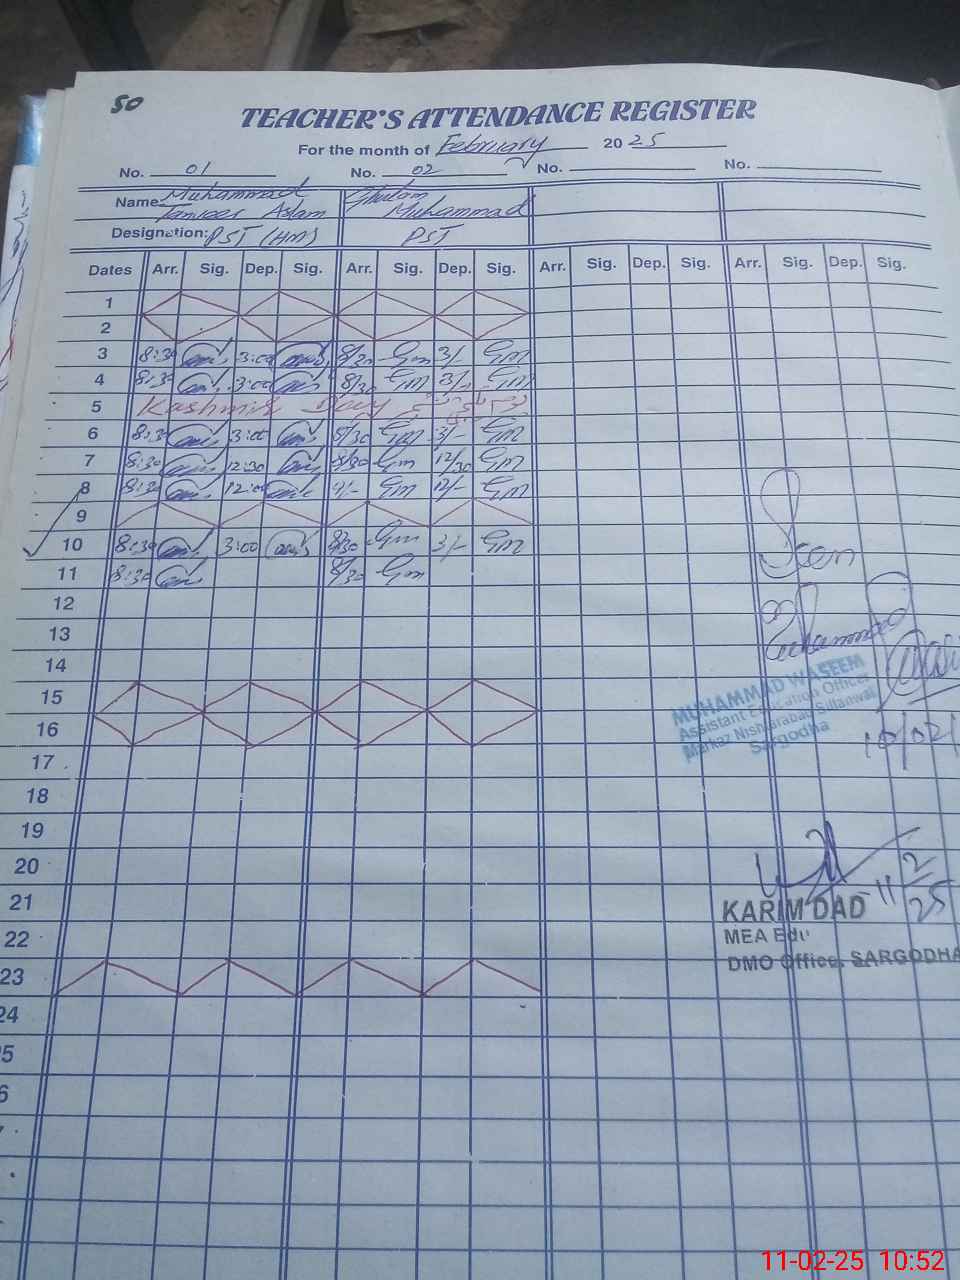 50
TEACHER'S ATTENDANCE REGISTER
For the month of February 20 25
No. 01 No. 02 No. No.
Name Muhammad Tanveer Aslam Ghulam Muhammad
Designation: PST (HM) PST
Dates Arr. Sig. Dep. Sig. Arr. Sig. Dep. Sig. Arr. Sig. Dep. Sig. Arr. Sig. Dep. Sig.
1
2
3 8:30 3:00 8/30 Gm 3/- GM
4 8:30 3:00 8/30 GM 3/- GM
5 Kashmir Day
6 8:30 3:00 8/30 GM 3/- GM
7 8:30 12:30 8/30 Gm 12/30 GM
8 8:30 12:00 9/- GM 12/- GM
9
10 8:30 3:00 8/30 Gm 3/- GM
11 8:30 8/30 Gm
12
13
14
15
16
17
18
19
20
21
22
23
24
5
6
Seen
Muhammad
MUHAMMAD WASEEM
Assistant Education Officer
Markaz Nishtarabad Sillanwali
Sargodha
10/02/
11 2/25
KARIM DAD
MEA Edu
DMO Office, SARGODHA
11-02-25 10:52